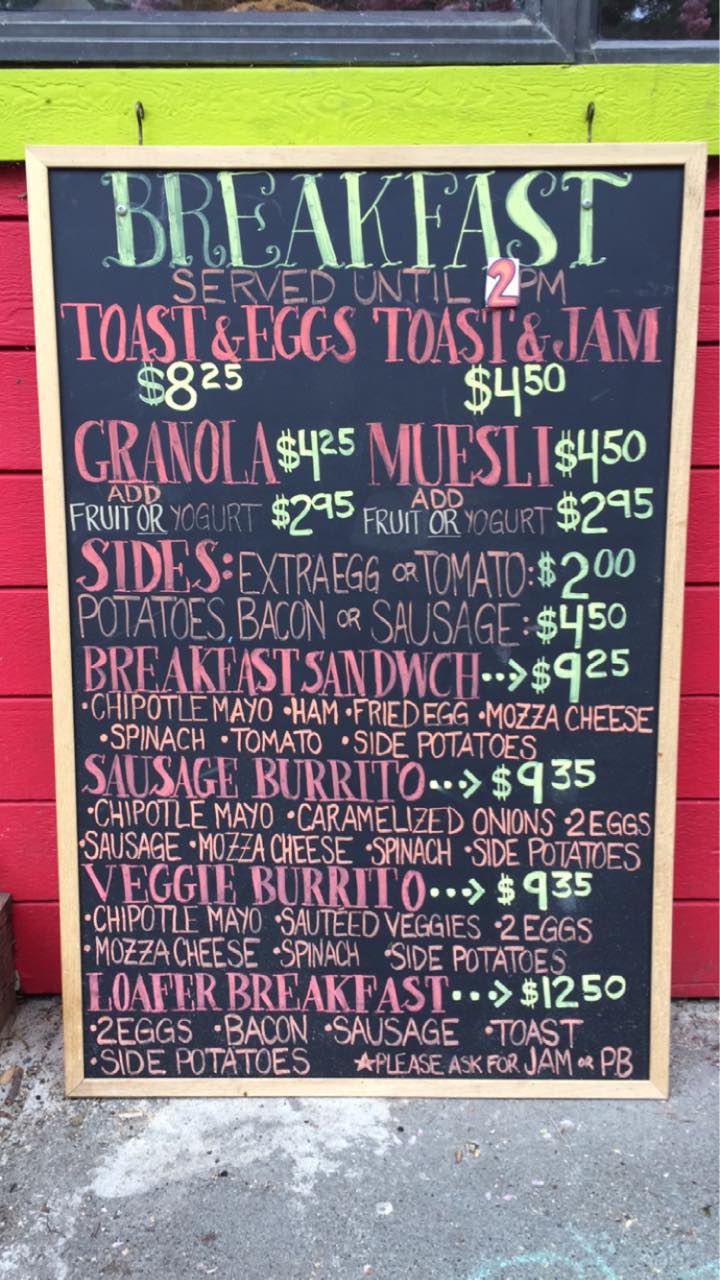 BREAKFAST
SERVED UNTIL 2PM
TOAST & EGGS TOAST & JAM
$8.25 $4.50
GRANOLA $4.25 MUESLI $4.50
ADD ADD
FRUIT OR YOGURT $2.95 FRUIT OR YOGURT $2.95
SIDES: EXTRA EGG OR TOMATO: $2.00
POTATOES BACON OR SAUSAGE: $4.50
BREAKFAST SANDWCH --> $9.25
•CHIPOTLE MAYO •HAM •FRIED EGG •MOZZA CHEESE
•SPINACH •TOMATO •SIDE POTATOES
SAUSAGE BURRITO ...> $9.35
•CHIPOTLE MAYO •CARAMELIZED ONIONS •2 EGGS
•SAUSAGE •MOZZA CHEESE •SPINACH •SIDE POTATOES
VEGGIE BURRITO ...> $9.35
•CHIPOTLE MAYO •SAUTÉED VEGGIES •2 EGGS
•MOZZA CHEESE •SPINACH •SIDE POTATOES
LOAFER BREAKFAST ...> $12.50
•2 EGGS •BACON •SAUSAGE •TOAST
•SIDE POTATOES ★PLEASE ASK FOR JAM OR PB